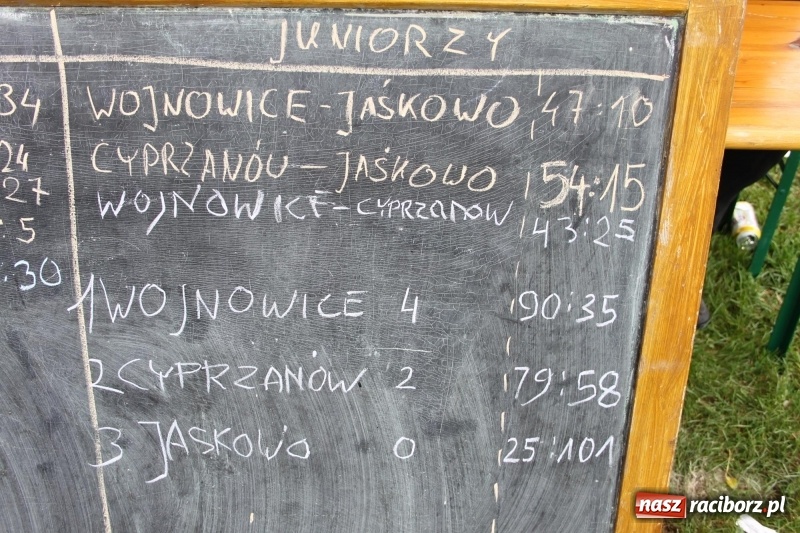 JUNIORZY
34 WOJNOWICE-JAŚKOWO 47:10
24 CYPRZANÓW-JAŚKOWO 54:15
27 WOJNOWICE-CYPRZANÓW
:5 43:25
:30
1 WOJNOWICE 4 90:35
2 CYPRZANÓW 2 79:58
3 JASKOWO 0 25:101
nasz raciborz.pl